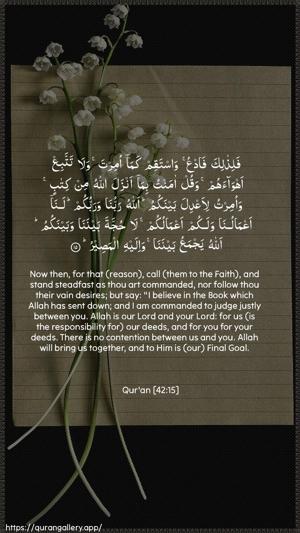 فَلِذٰلِكَ فَادْعُ ۚ وَاسْتَقِمْ كَمَآ اُمِرْتَ ۚ وَلَا تَتَّبِعْ
اَهْوَاۤءَهُمْ ۚ وَقُلْ اٰمَنْتُ بِمَآ اَنْزَلَ اللّٰهُ مِنْ كِتٰبٍ ۚ
وَاُمِرْتُ لِاَعْدِلَ بَيْنَكُمُ ۗ اَللّٰهُ رَبُّنَا وَرَبُّكُمْ ۗ لَنَآ
اَعْمَالُنَا وَلَكُمْ اَعْمَالُكُمْ ۗ لَا حُجَّةَ بَيْنَنَا وَبَيْنَكُمْ ۗ
اَللّٰهُ يَجْمَعُ بَيْنَنَا ۚ وَاِلَيْهِ الْمَصِيْرُ ۗ ۝١٥
Now then, for that (reason), call (them to the Faith), and
stand steadfast as thou art commanded, nor follow thou
their vain desires; but say: "I believe in the Book which
Allah has sent down; and I am commanded to judge justly
between you. Allah is our Lord and your Lord: for us (is
the responsibility for) our deeds, and for you for your
deeds. There is no contention between us and you. Allah
will bring us together, and to Him is (our) Final Goal.
Qur'an [42:15]
https://qurangallery.app/